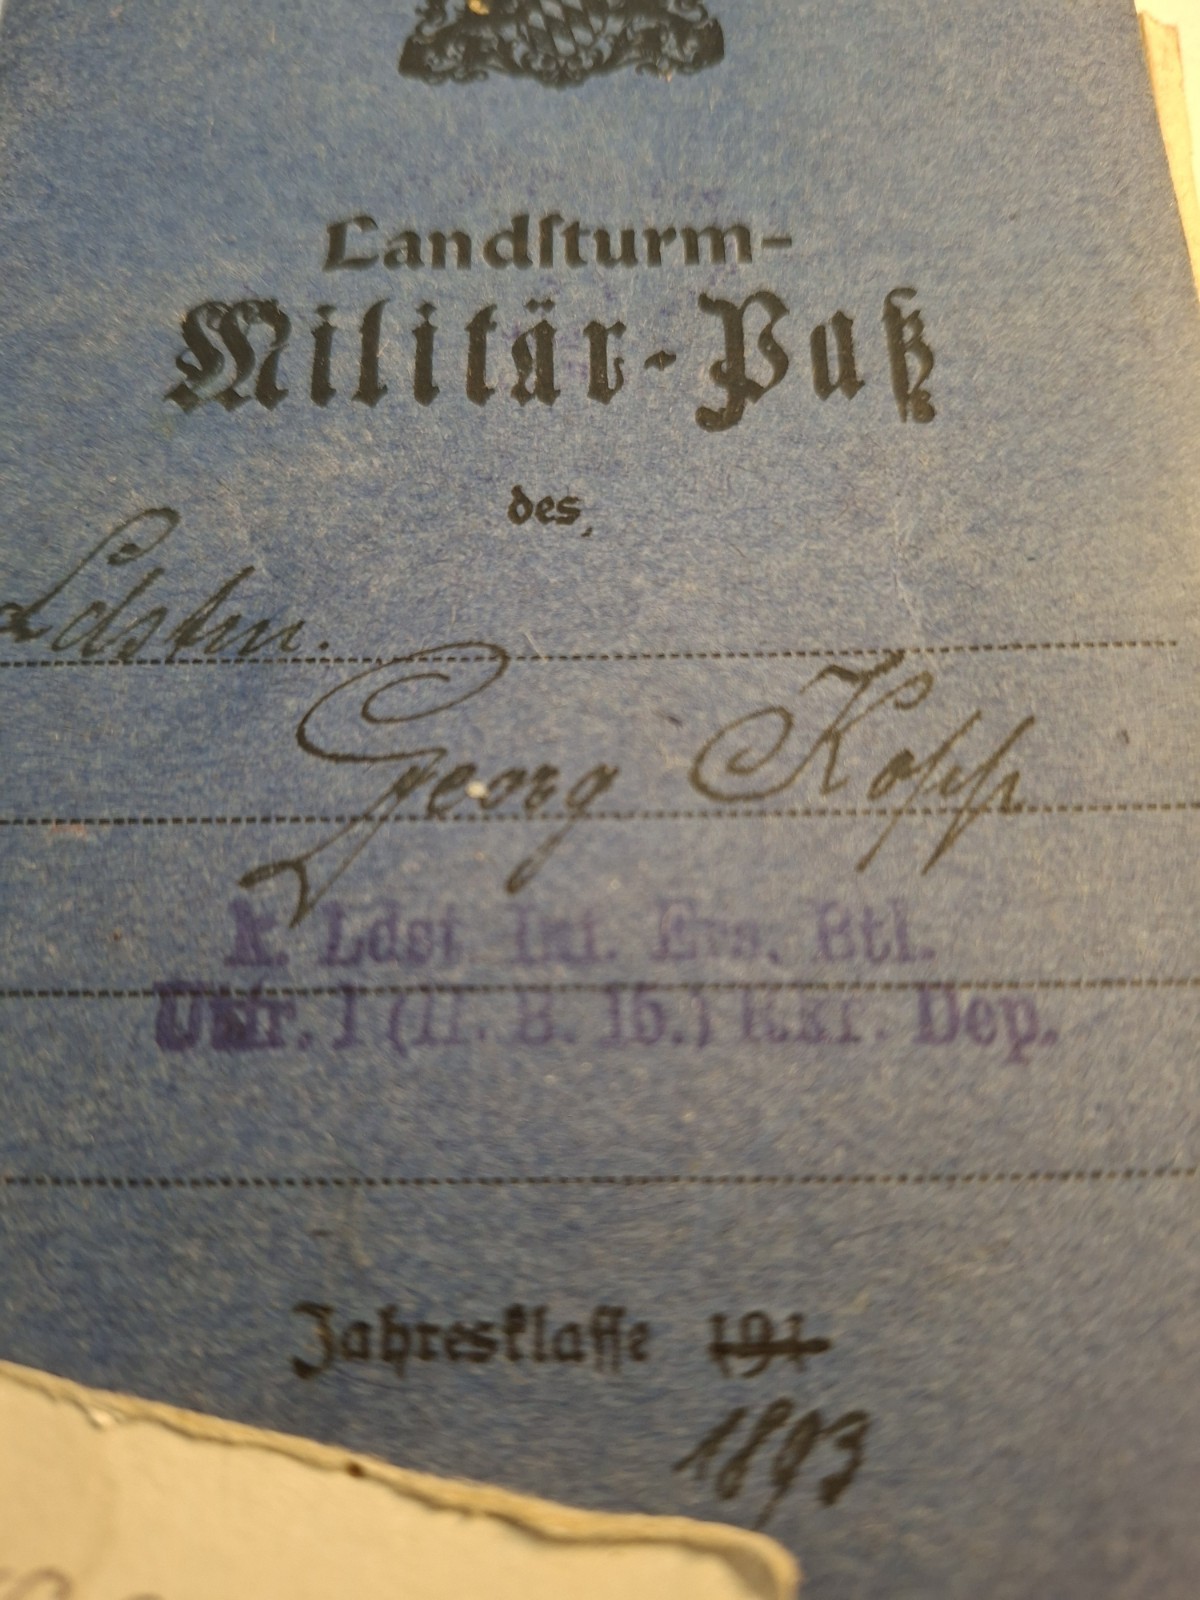 Landsturm-
Militär-Paß
des
Ldstm.
Georg Kopp
K. Ldst. Inf. Ers. Btl.
(II. B. 16.) Rkr. Dep.
Jahresklasse 191
1893